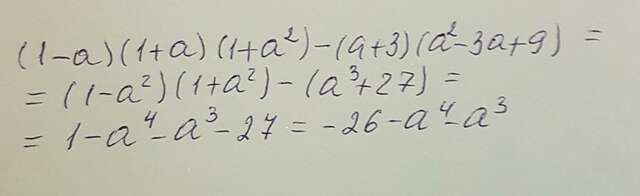 (1-a)(1+a)(1+a²)-(a+3)(a²-3a+9) =
= (1-a²)(1+a²)-(a³+27) =
= 1-a⁴-a³-27 = -26-a⁴-a³